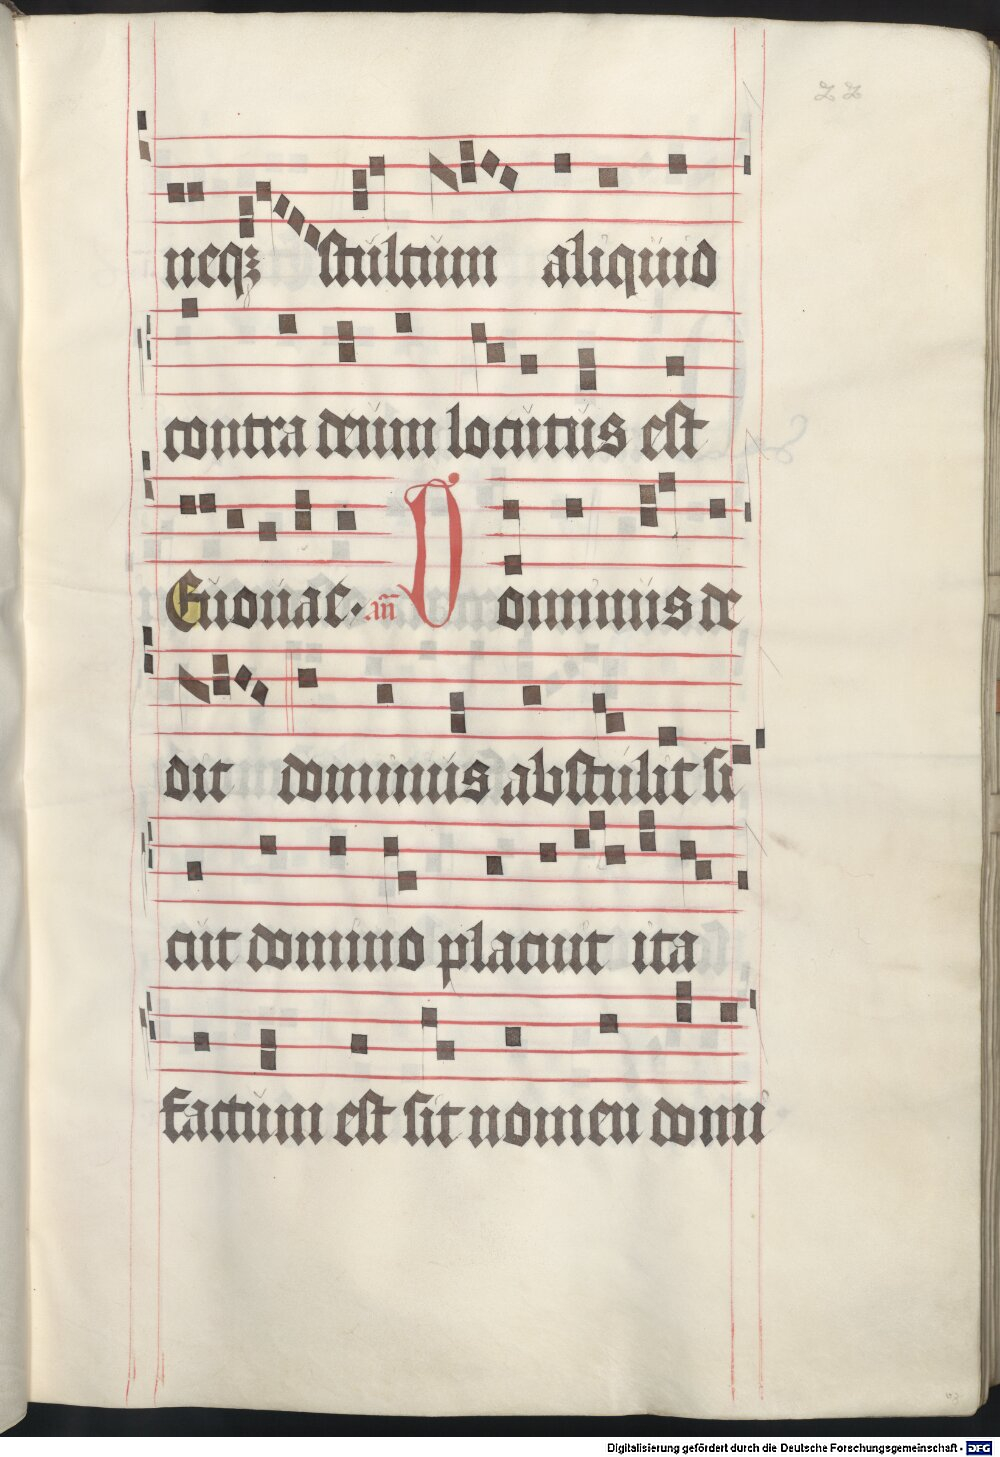 22
neqꝫ stultum aliquid
contra deum locutus est
Euouae. an̄ D ominus de
dit dominus abstulit si
cut domino placuit ita
factum est sit nomen domi
Digitalisierung gefördert durch die Deutsche Forschungsgemeinschaft - DFG